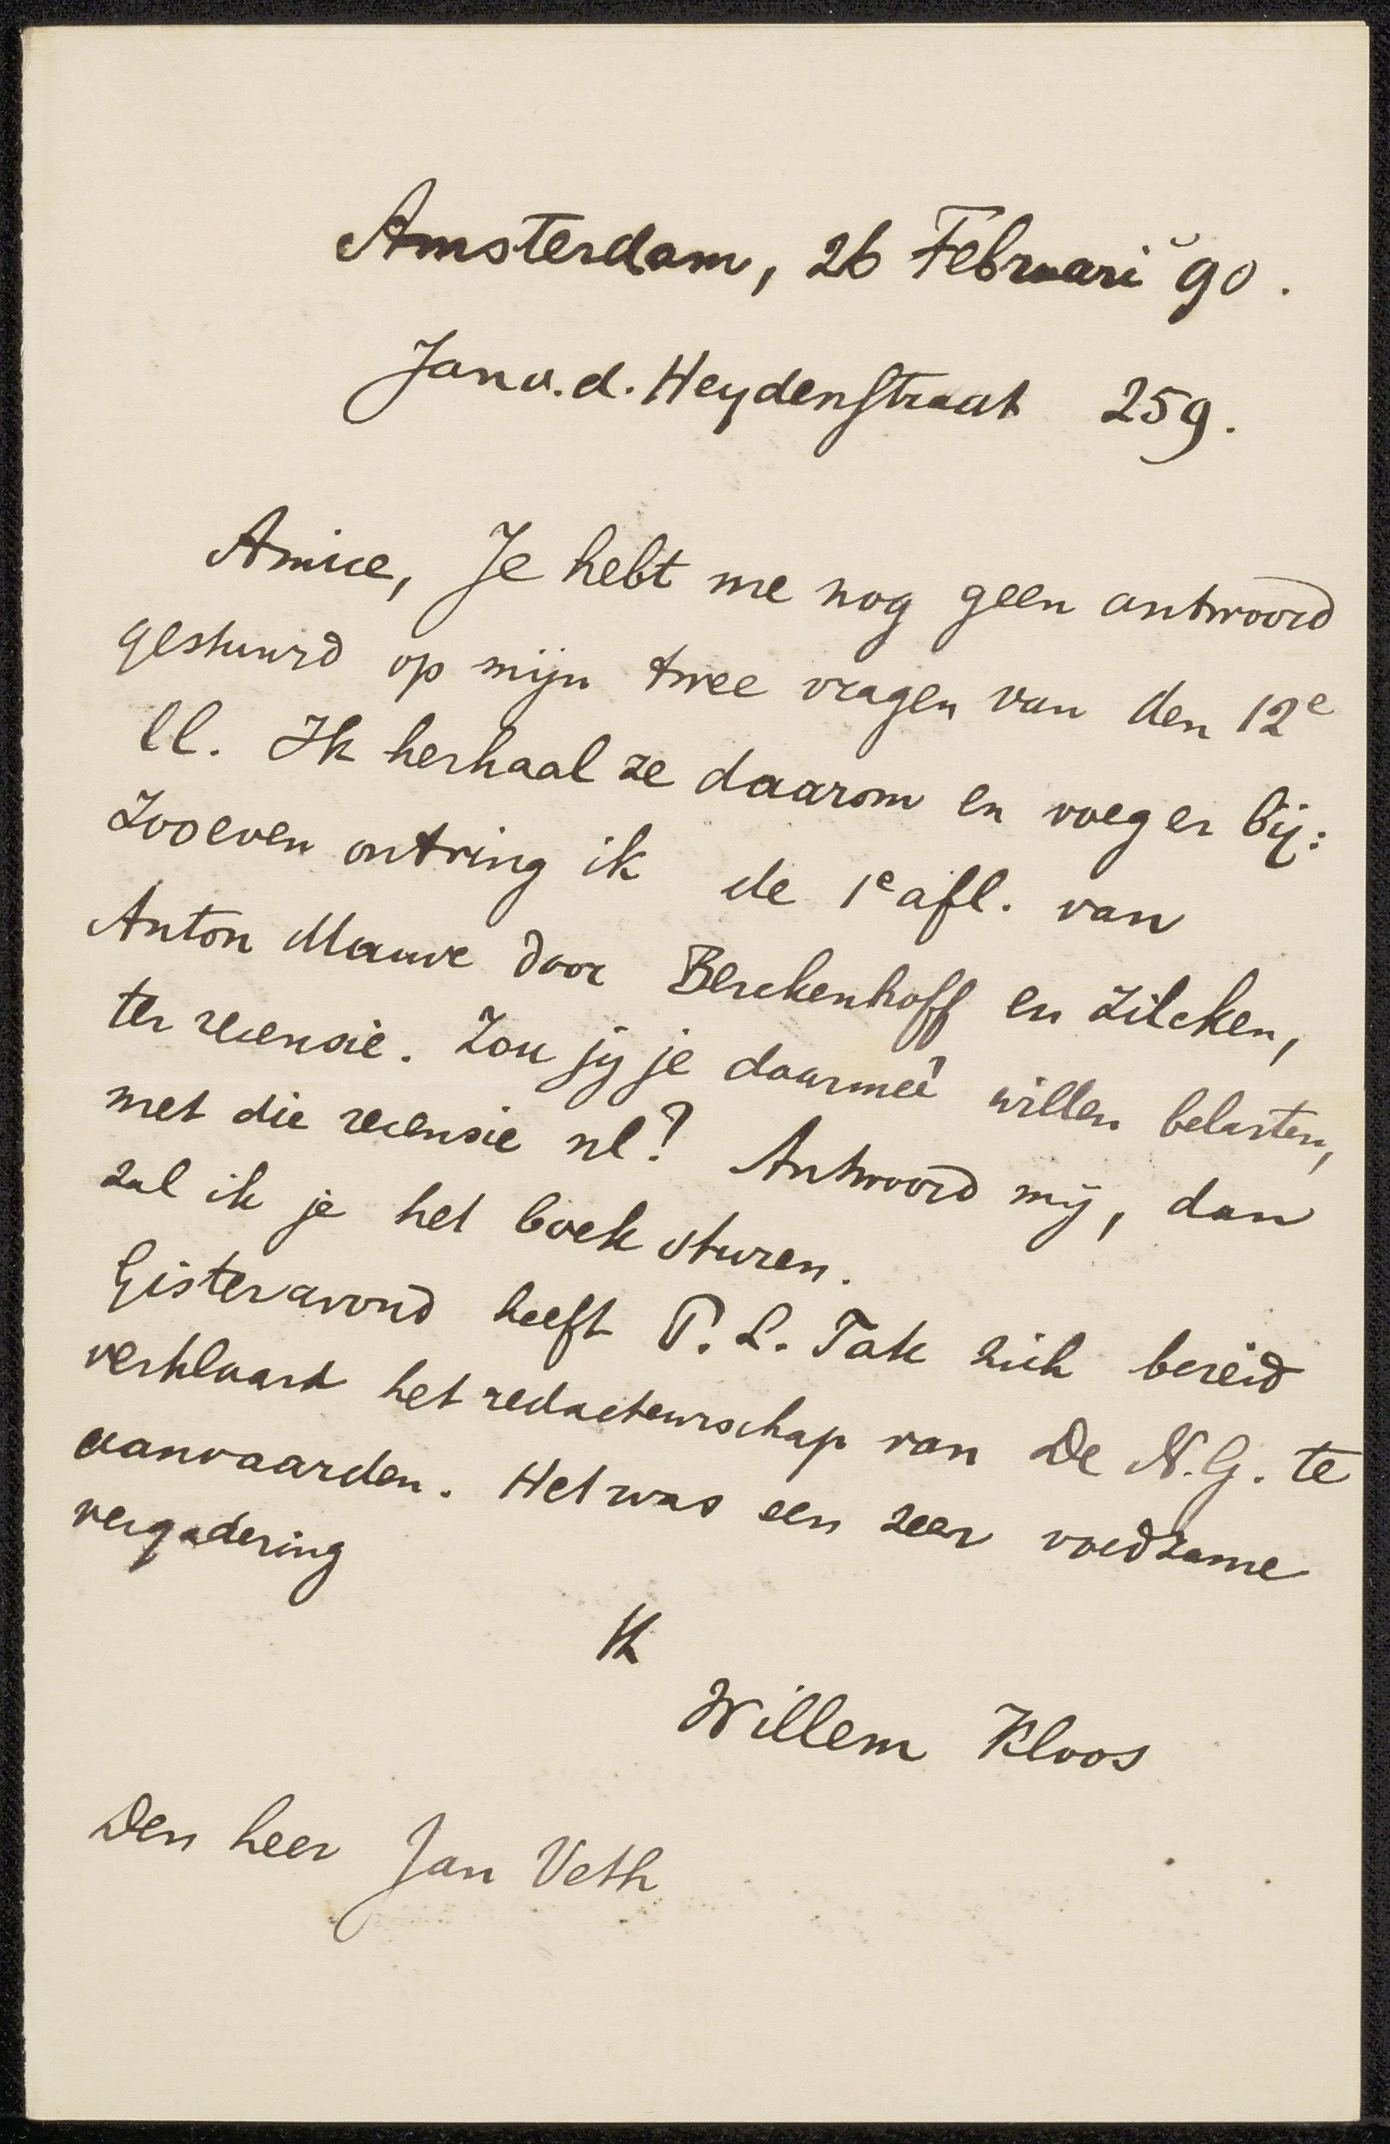 Amsterdam, 26 Februari '90.
Jan v.d. Heydenstraat 259.
Amice, Je hebt me nog geen antwoord
gestuurd op mijn twee vragen van den 12e
ll. Ik herhaal ze daarom en voeg er bij:
Zooeven ontving ik de 1e afl. van
Anton Mauve door Berckenhoff en Zilcken,
ter recensie. Zou jij je daarmeê willen belasten,
met die recensie nl? Antwoord mij, dan
zal ik je het boek sturen.
Gisteravond heeft P. L. Tak zich bereid
verklaard het redacteurschap van De N.G. te
aanvaarden. Het was een zeer voedzame
vergadering
tt
Willem Kloos
Den heer Jan Veth